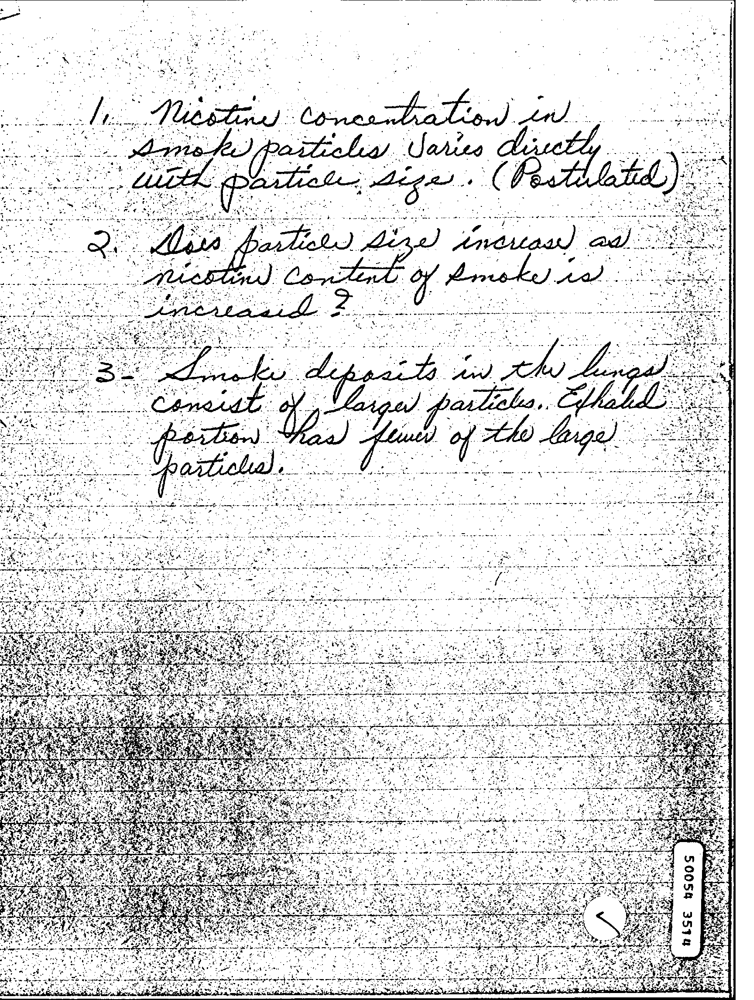 1. Nicotine concentration in
smoke particles varies directly
with particle size. (Postulated)
2. Does particle size increase as
nicotine content of smoke is
increased?
3- Smoke deposits in the lungs
consist of larger particles. Exhaled
portion has fewer of the large
particles.
50054 3514